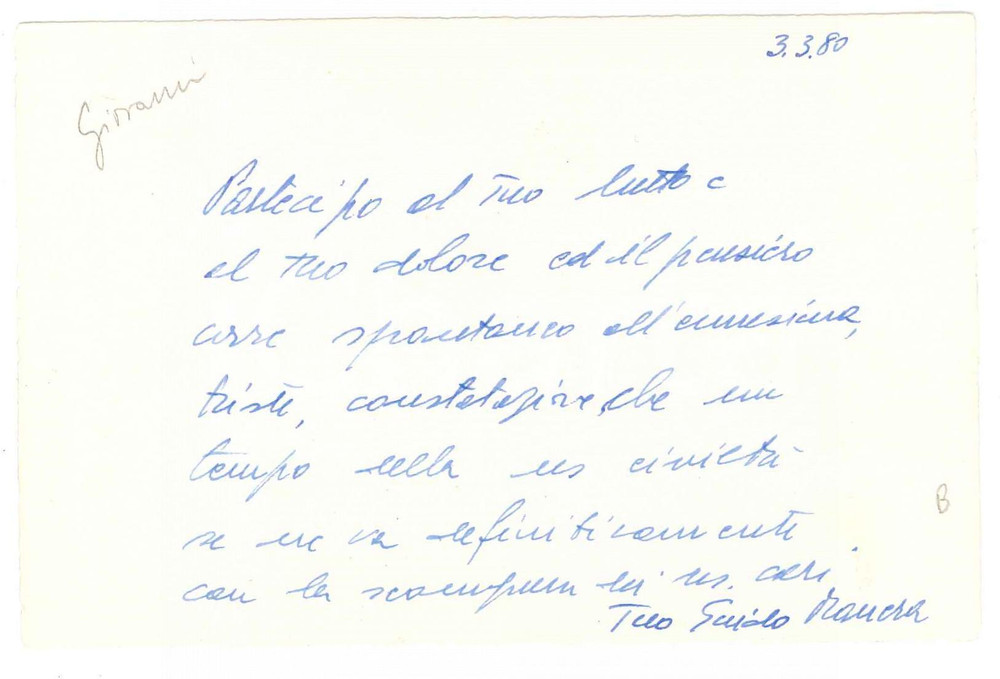 3.3.80
Giovanni
Partecipo al Tuo lutto e
al tuo dolore ed il pensiero
corre spontaneo all'ennesima,
triste, constatazione, che un
tempo della ns civiltà
se ne va definitivamente
con la scomparsa dei ns. cari.
Tuo Guido
B